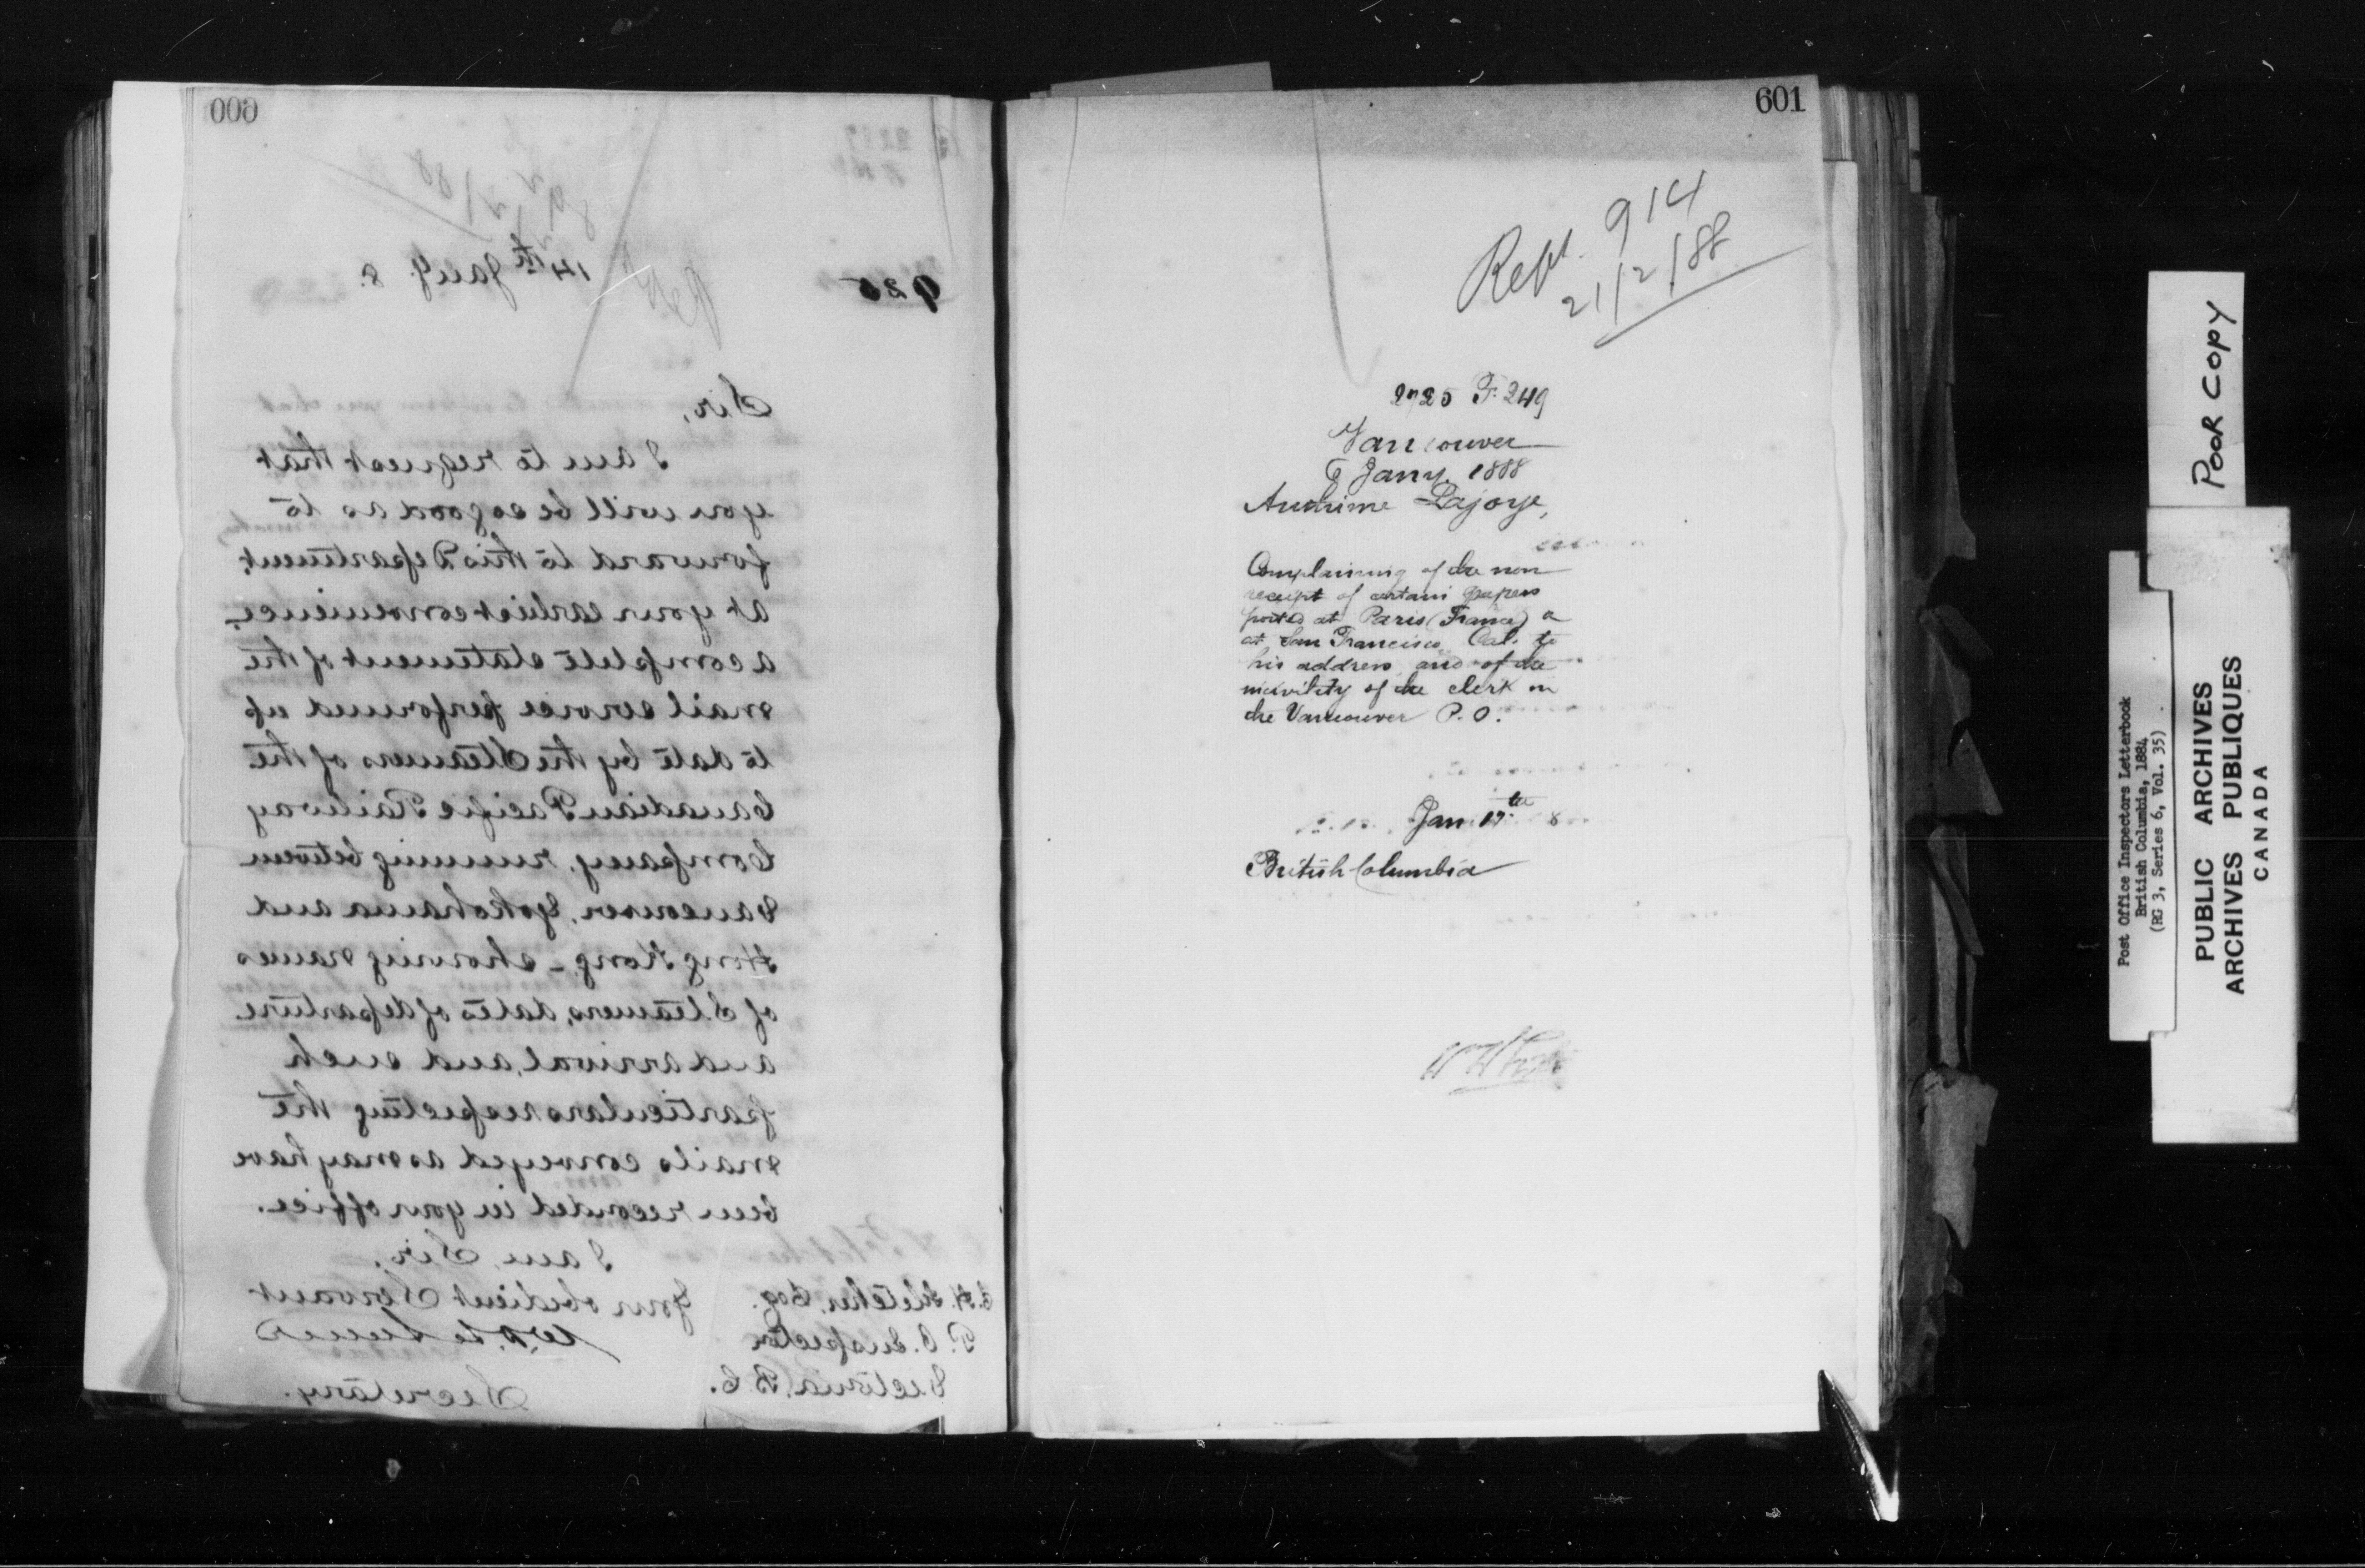 600
14th Jany. 8.
925
Sir,
I am to request that
you will be so good as to
forward to this Department,
at your earliest convenience,
a complete statement of the
mail service performed up
to date by the Steamers of the
Canadian Pacific Railway
Company, running between
Vancouver, Yokohama and
Hong Kong, - showing names
of Steamers, dates of departure
and arrival, and such
particulars respecting the
mails conveyed as may have
been recorded in your office.
I am, Sir,
Your obedient Servant
Secretary.
E. H. Fletcher, Esq.
P. O. Inspector
Victoria, B.C.
601
Rept. 914
21/2/88
2725 F. 249
Vancouver
6 Jany. 1888
Lajoye,
Complaining of the non
receipt of certain papers
posted at Paris (France) &
at San Francisco Cal. to
his address and of the
incivility of the clerk in
the Vancouver P.O.
Jan 17th 8
British Columbia
POOR COPY
Post Office Inspectors Letterbook
British Columbia, 1884
(RG 3, Series 6, Vol. 35)
PUBLIC ARCHIVES
ARCHIVES PUBLIQUES
CANADA